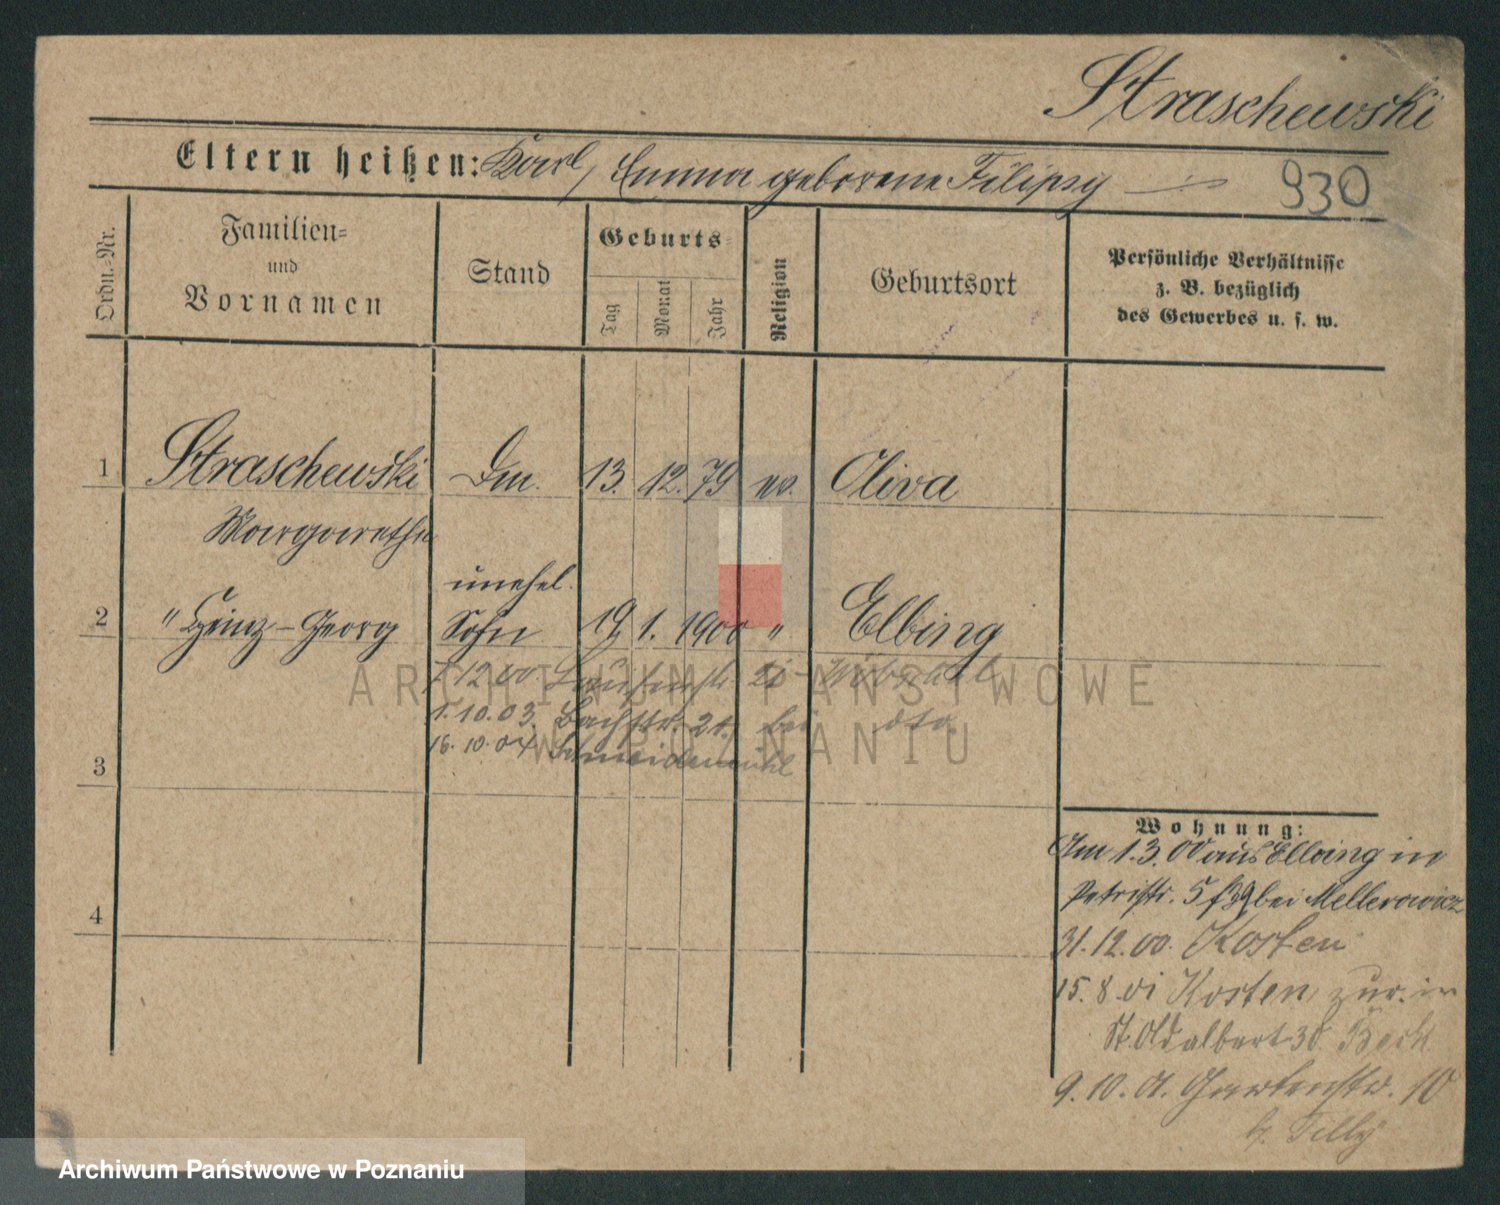 Straschewski
Eltern heißen: Karl, Emma geborene Filipsy
930
Ordn.-Nr.
Familien-
und
Vornamen
Stand
Geburts-
Tag
Monat
Jahr
Religion
Geburtsort
Persönliche Verhältnisse
z. B. bezüglich
des Gewerbes u. s. w.
1 Straschewski Dm. 13. 12. 79 ev. Oliva
Margarethe
unehel.
2 " Heinz-Georg Sohn 19. 1. 1900 " Elbing
12.00
ARCHIWUM PAŃSTWOWE
1.10.03. Bachstr. 21. bei dto.
W POZNANIU
16.10.04 Schneidemühl
3
Wohnung:
Am 1.3.00 aus Elbing in
Petristr. 5 bei Mellerowicz
4
31.12.00. Kosten
15.8.01 Kosten, zur. in
St. Adalbert 30.
9.10.01. Gartenstr. 10
b. Tilly
Archiwum Państwowe w Poznaniu